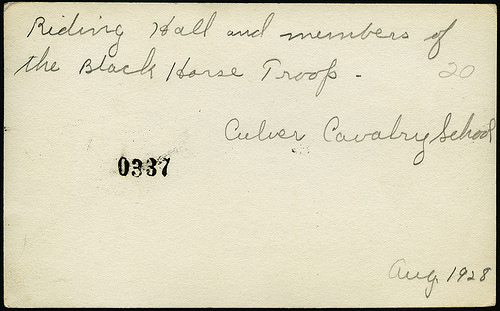 Riding Hall and members of
the Black Horse Troop -
20
Culver Cavalry School
0337
Aug. 1928